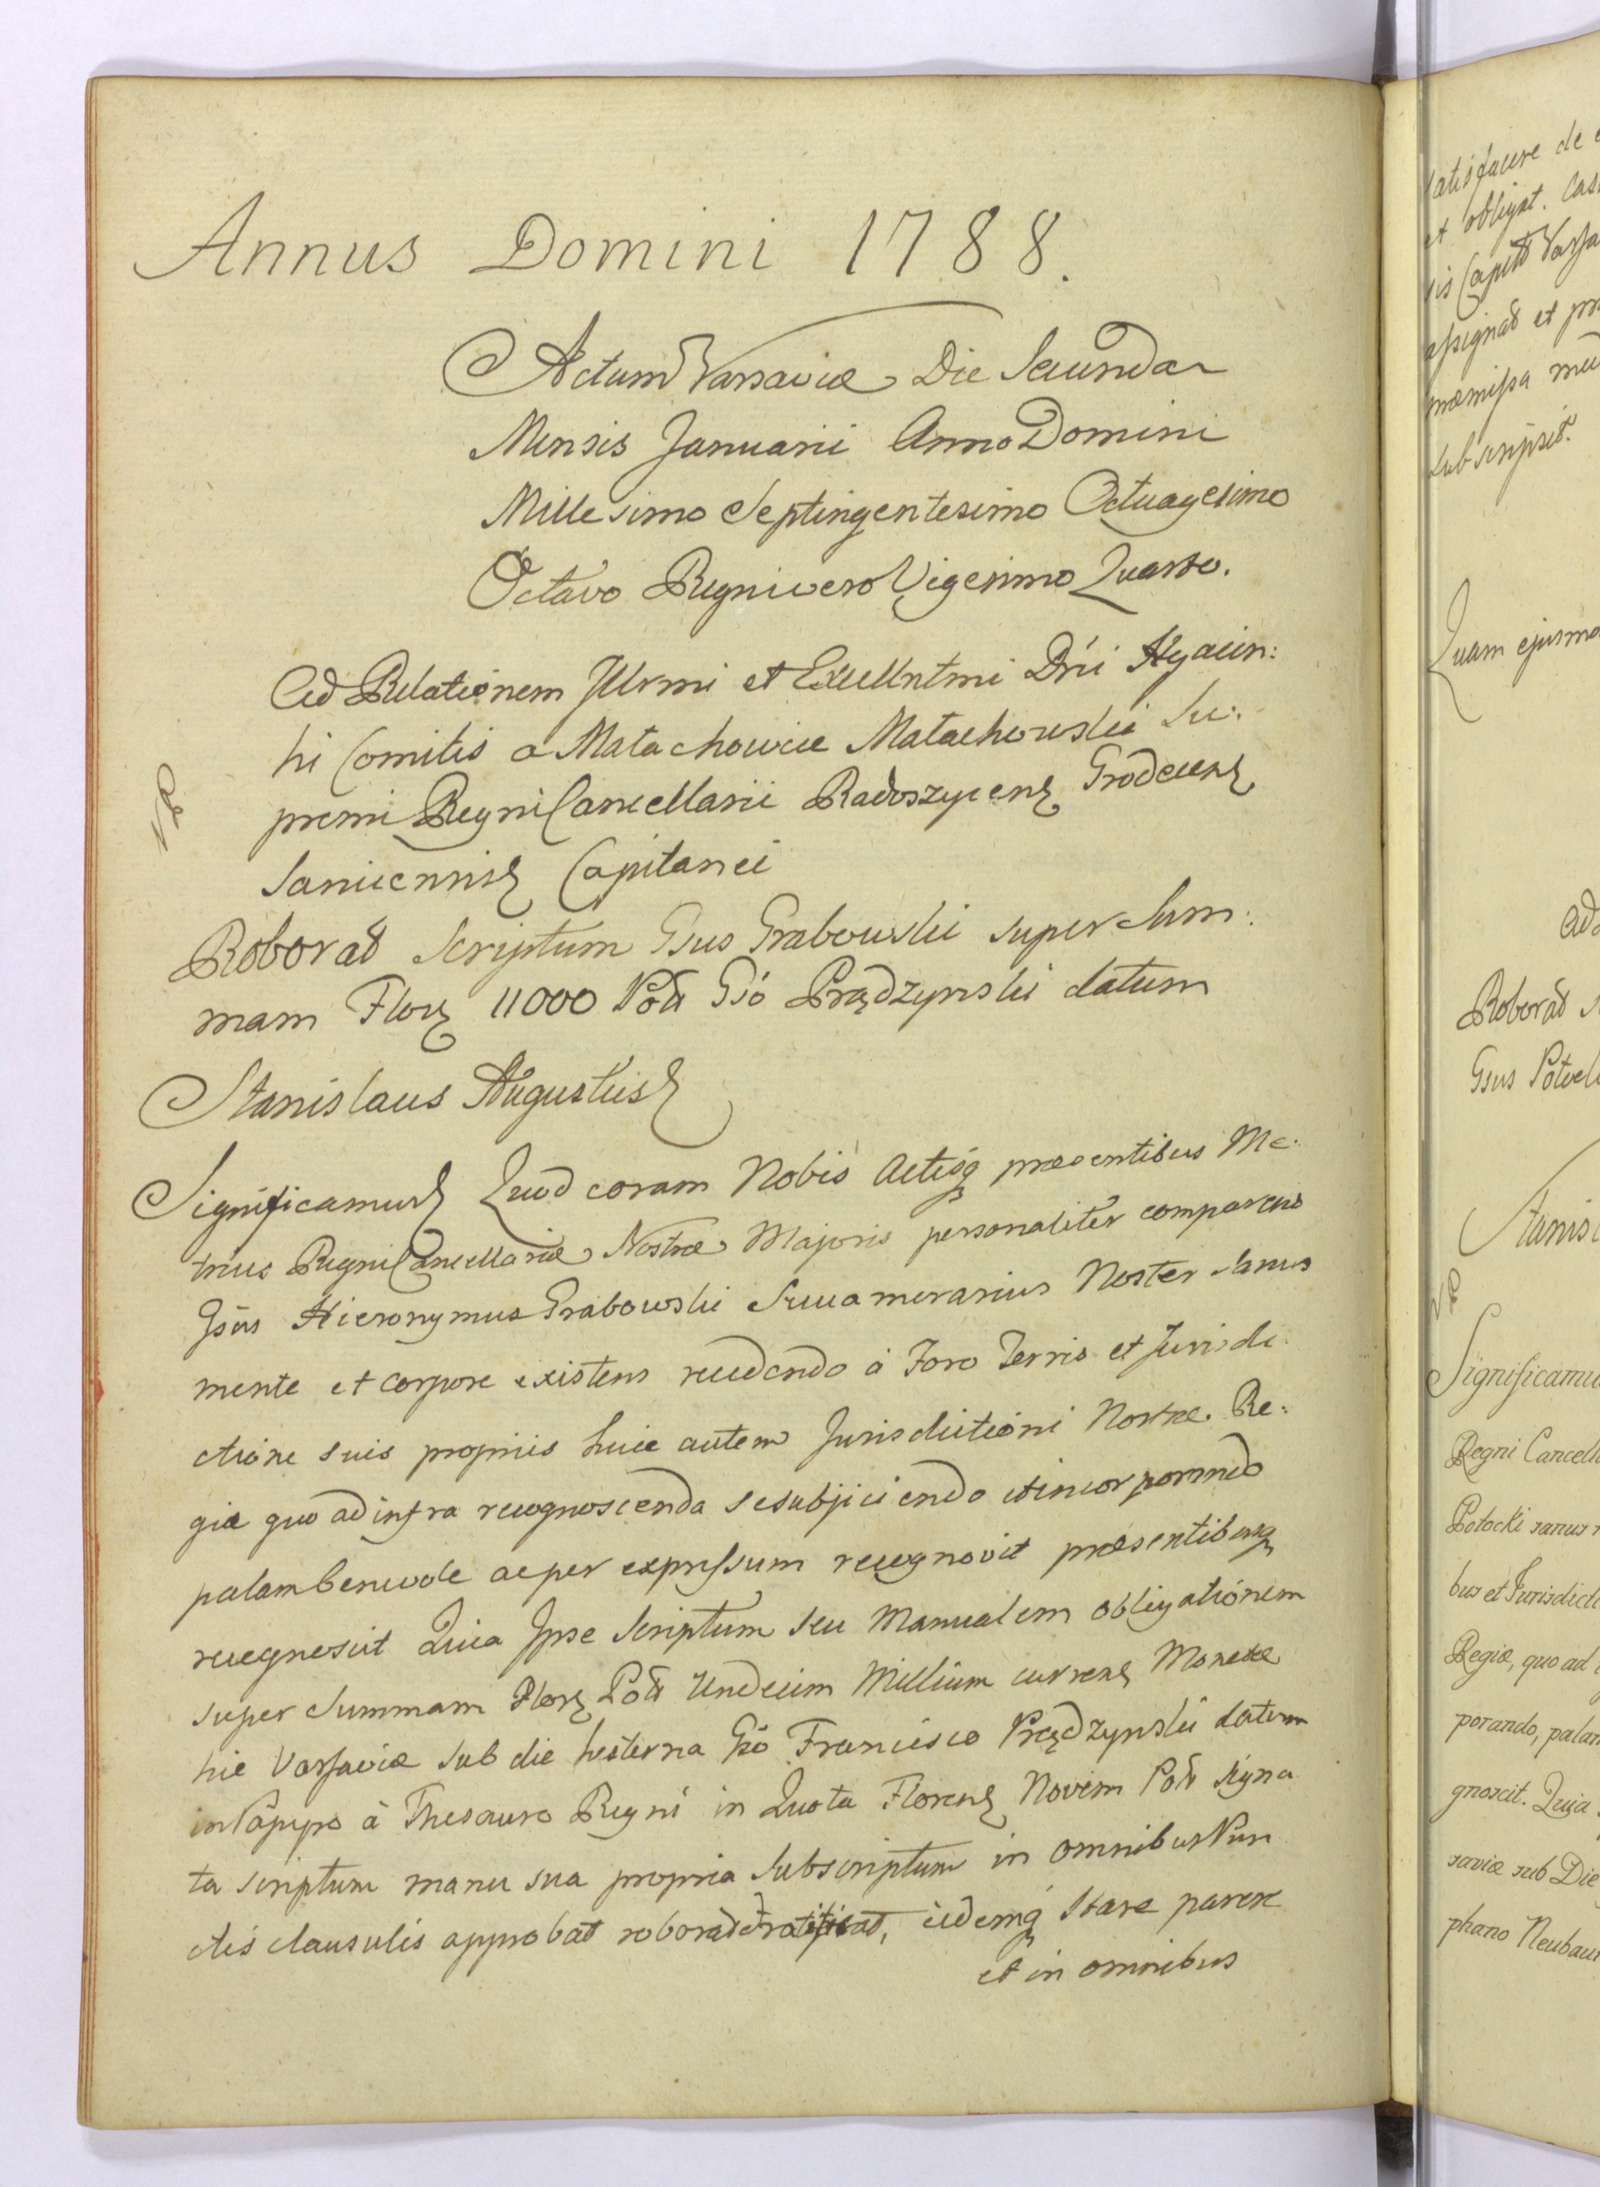 Annus Domini 1788.
Actum Varsaviæ Die Secunda
Mensis Januarii Anno Domini
Millesimo Septingentesimo Octuagesimo
Octavo Regni vero Vigesimo Quarto.
Ad Relationem Illrmi et Excellntmi Dńi Hyacin:
hi Comitis a Małachowice Małachowski Su:
premi Regni Cancellarii Radoszycens Grodecens
Saniecensis Capitanei
Roborat Scriptum Gsus Grabowski super Sum:
mam Flor 11000 Pol Gso Prądzynski datum
Stanislaus Augustus
Significamus Quod coram Nobis Actisq præsentibus Me:
tricis Regni Cancellariæ Nostræ Majoris personaliter comparens
Gsus Hieronymus Grabowski Succamerarius Noster Sanus
mente et corpore existens recedendo à Foro Terris et Jurisdi:
ctione suis propriis huic autem Jurisdictioni Nostræ Re:
giæ quo ad infra recognoscenda se subjiciendo et incorporando
palam benevole ac per expressum recognovit præsentibusq
recognoscit Quia Ipse Scriptum seu Manualem obligationem
super Summam Flor Pol Undecim Millium currens Monetæ
hic Varsaviæ sub die hesterna Gso Francisco Prądzynski datum
in Papyro à Thesauro Regni in Quota Florens Novem Pol Signa
ta scriptum manu sua propria Subscriptum in omnibus Pun
ctis clausulis approbat roborat et ratificat, iidemq Stare parere
et in omnibus
satisfacere de
et obligat.
assignat et
præmissa
subscripsit.
Quam ejusmo
Ad
Roborat
Gsus Potocki
Stanisl
Significamu
Regni Cancell
Potocki sanus
bus et Jurisdict
Regiæ, quo ad
porando, palam
gnoscit. Quia
saviæ sub Die
phano Neubau